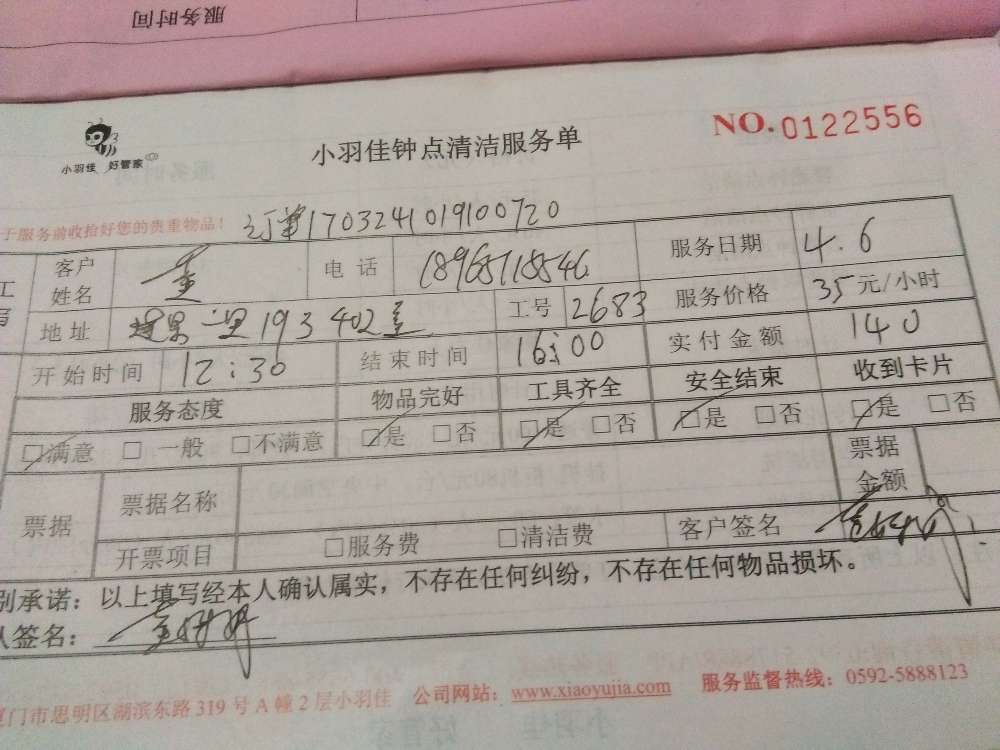 服务时间
小羽佳 好管家
小羽佳钟点清洁服务单
NO.0122556
于服务前收拾好您的贵重物品！ 订单1703241019100720
客户姓名 电话 18965118546 服务日期 4.6
地址 一里193 402室 工号 2683 服务价格 35元/小时
开始时间 12:30 结束时间 16:00 实付金额 140
服务态度 物品完好 工具齐全 安全结束 收到卡片
□满意 □一般 □不满意 □是 □否 □是 □否 □是 □否 □是 □否
票据 票据名称 票据金额
开票项目 □服务费 □清洁费 客户签名
别承诺：以上填写经本人确认属实，不存在任何纠纷，不存在任何物品损坏。
人签名：
厦门市思明区湖滨东路319号A幢2层小羽佳 公司网站：www.xiaoyujia.com 服务监督热线：0592-5888123